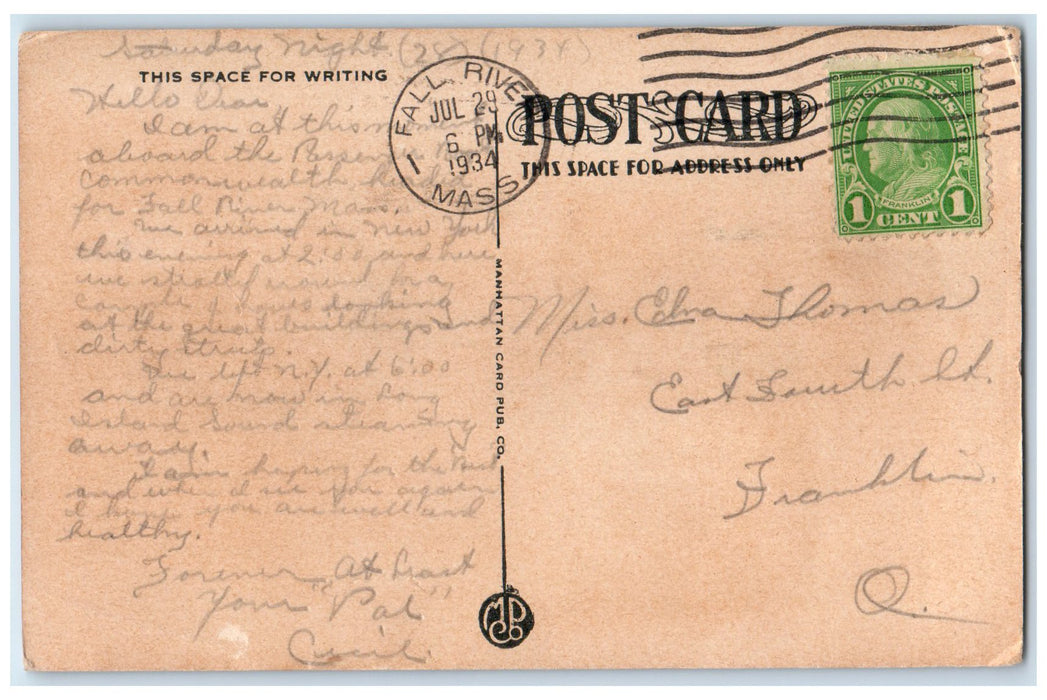 Saturday Night (28) (1934)
THIS SPACE FOR WRITING
Hello Dear
I am at this
aboard the
Commonwealth
for Fall River, Mass.
We arrived in New York
this evening at 2:00 and have
around for a
looking
at the great buildings and
dirty streets.
We left N.Y. at 6:00
and are now in Long
Island Sound steaming
away.
I am hoping for the best
and when I see you again
I hope you are well and
healthy.
Forever, At Least
Your "Pal"
Cecil.
FALL RIVER
JUL 29
6 PM
1934
1 MASS
POST CARD
THIS SPACE FOR ADDRESS ONLY
UNITED STATES POSTAGE
FRANKLIN
1 CENT 1
MANHATTAN CARD PUB. CO.
Miss. Elva Thomas
East Fourth St.
Franklin.
O.
MCPCo